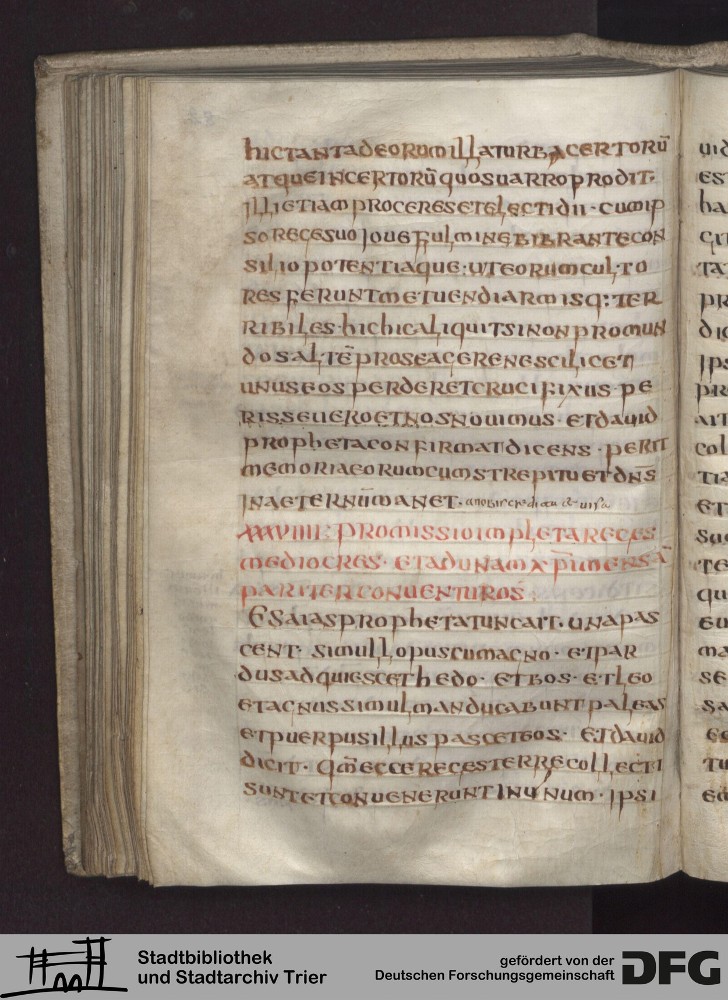 hictantadeorum illaturbacertorū
atqueincertorū quosuarroprodit.
illietiamproceresetelectidii · cumip
sorecesuo ioue fulminebibrantecon
siliopotentiaque: uteorumculto
resferuntmetuendiarmisq: ter
ribiles · hichicaliquitsinonpromun
dosaltē proseagerenescilicet
unuseosperderetcrucifixus · pe
risseueroetnosnouimus · etdauid
prophetaconfirmatdicens · periit
memoriaeorumcumstrepituetdn̄s
inaeternūmanet ·
xxxviiii: promissioimpletareges
mediocres · etadunamxp̄imensā
pariterconuenturos
esaiasprophetatuncait · unapas
cent · simullopuscumagno · etpar
dusadquiescethedo · etbos · etleo
etagnussimulmanducabuntpaleas
etpuerpusilluspasceteos · etdauid
dicit · qm̄ecceregesterrecollecti
suntetconueneruntinunum · ipsi
Stadtbibliothek
und Stadtarchiv Trier
gefördert von der
Deutschen Forschungsgemeinschaft
DFG